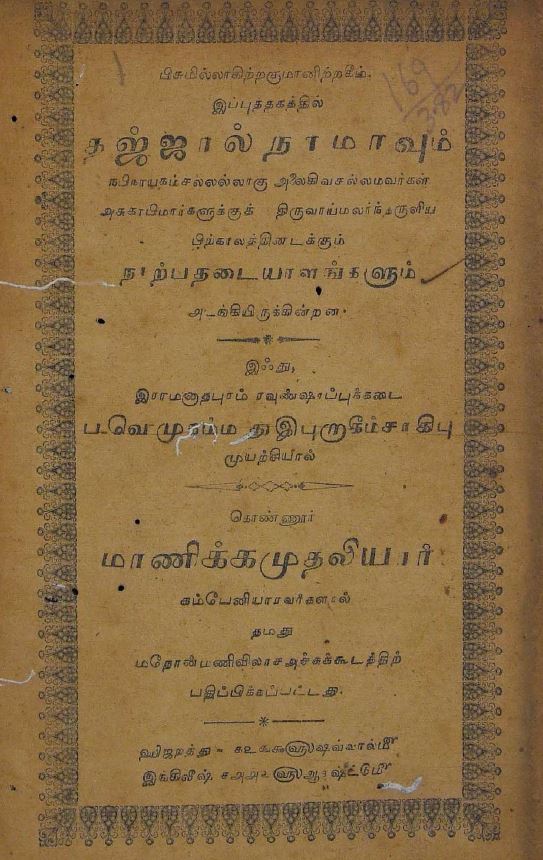 பிசுமில்லாகிற்றகுமானிற்றகீம்.
169
3.82
இப்புத்தகத்தில்
தஜ்ஜால்நாமாவும்
நபிநாயகம்சல்லல்லாகு அலைகிவசல்லமவர்கள்
அசுகாபிமார்களுக்குக் திருவாய்மலர்ந்தருளிய
பிற்காலத்தினடக்கும்
நாற்பதடையாளங்களும்
அடங்கியிருக்கின்றன.
இஃது,
இராமனாதபுரம் ரவுண்ஷாப்புக்கடை
முகம்மதுஇபுறுகீம்சாகிபு
முயற்சியால்
கொண்ணூர்
மாணிக்கமுதலியார்
கம்பேனியாரவர்களால்
தமது
மதோன்மணிவிலாசஅச்சுக்கூடத்திற்
பதிப்பிக்கப்பட்டது.
ஹிஜறத்து - ஷவ்வால்௴
இங்கிலீஷ்